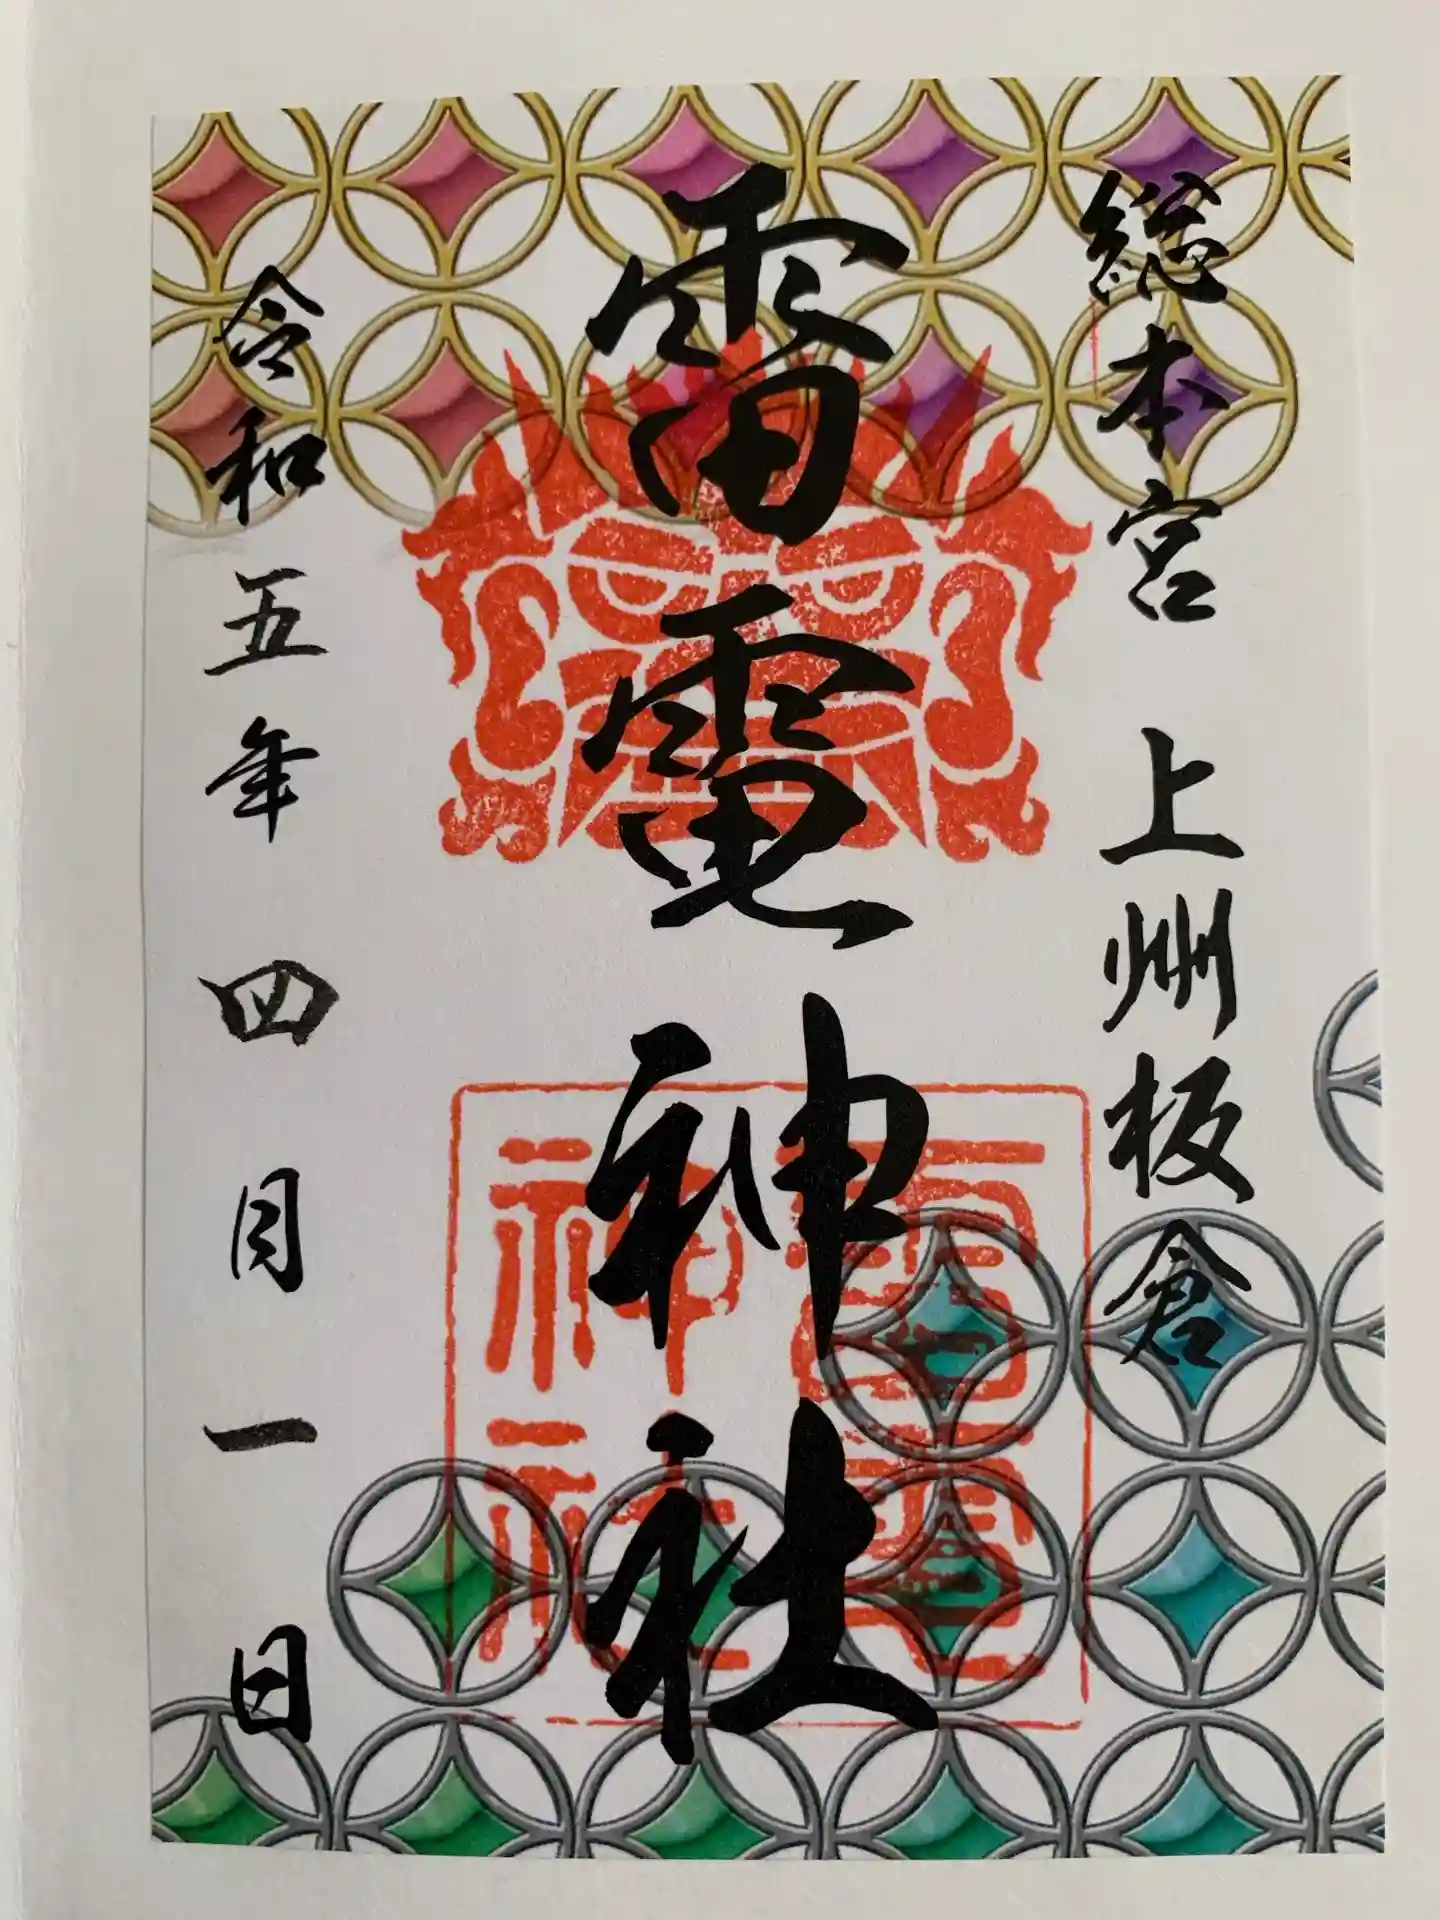 総本宮 上州板倉
雷電神社
雷電
神社
令和五年四月一日